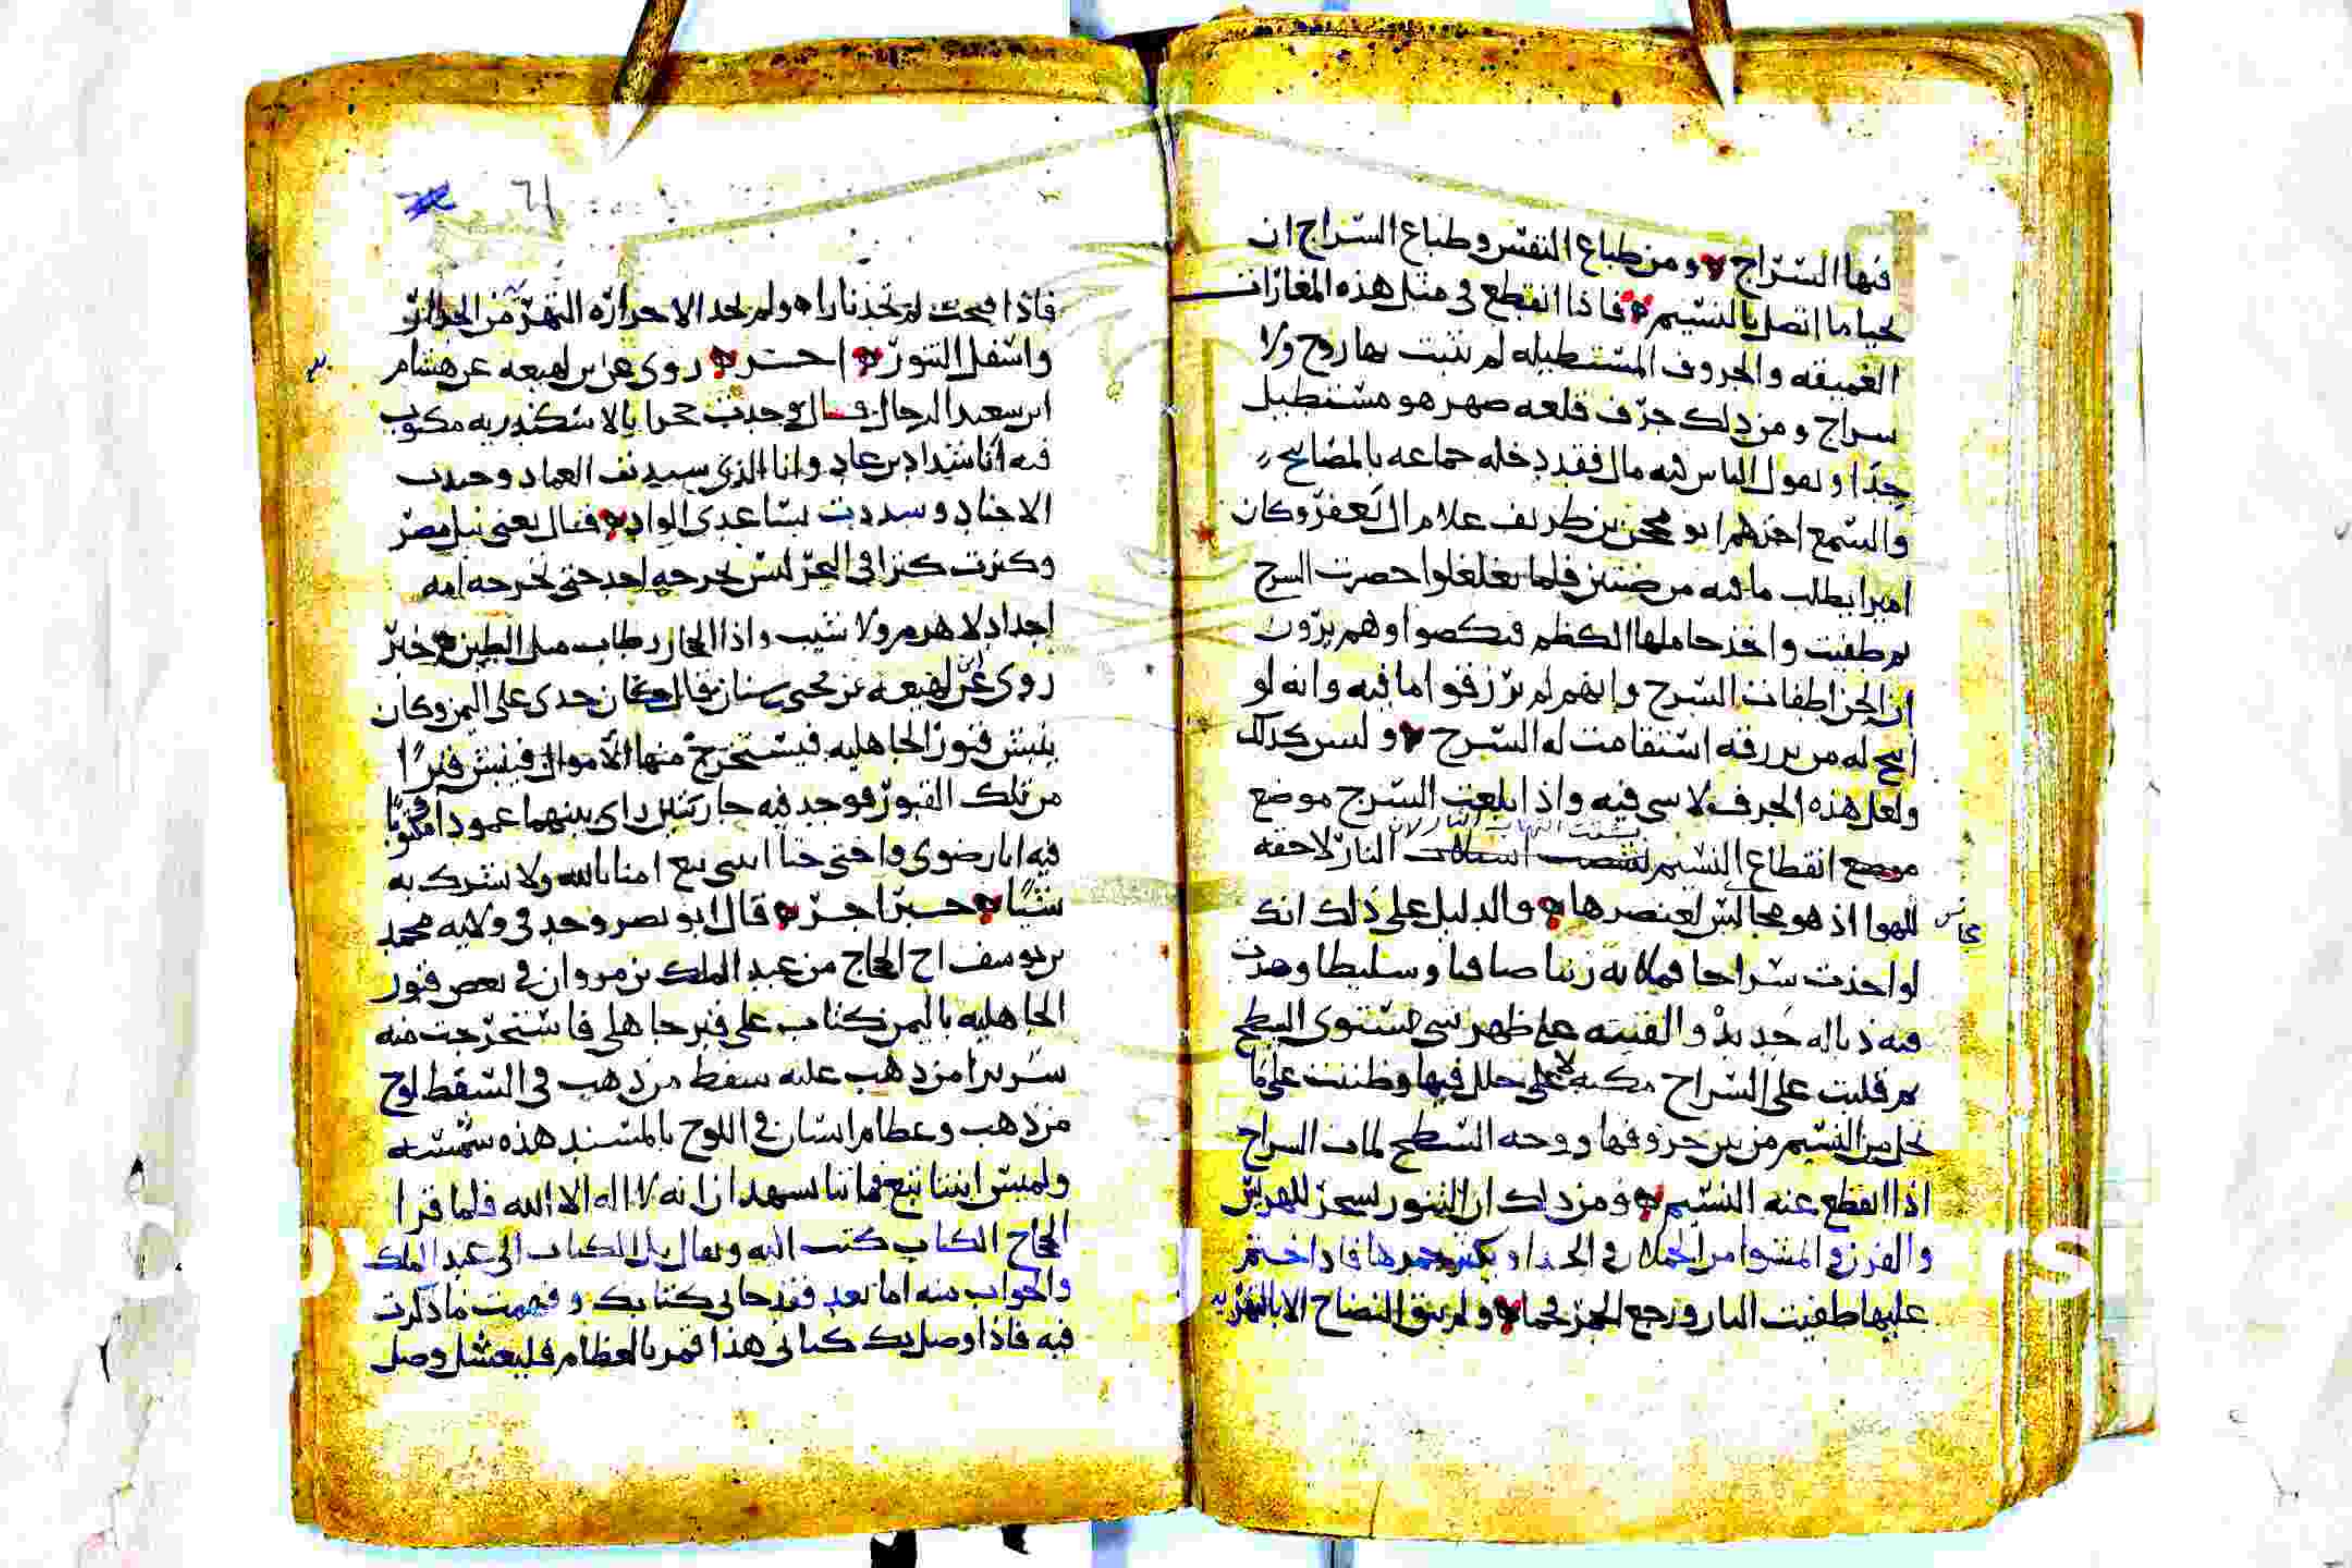 فيها السراج ومن طباع النفس وطباع السراج ان
يحيا ما اتصل بالنسيم فاذا انقطع في مثل هذه المغارات
العميقه والجروف المستطيله لم تثبت بها روح ولا
سراج ومن ذلك جرف قلعه ضهر هو مستطيل
جدا ويقول الناس فيه مال فقد دخله جماعه بالمصابيح
والشمع احدهم ابو محجن بن طريف غلام ال يعفر وكان
اميرا يطلب ما فيه من ضنين فلما تغلغلوا حصرت السرج
ثم طفيت واخذ حاملها الكظم فنكصوا وهم يرون
ان الجن اطفات السرج وانهم لم يرزقوا ما فيه وانه لو
اتيح له من يرزقه استقامت له السرج وليس كذلك
ولعل هذه الجرف لا شي فيه واذا بلغت السرج موضع
موضع انقطاع النسيم النار لاحقه
للهوا اذ هو مجالس لعنصرها والدليل على ذلك انك
مجانس
لو اخذت سراجا فملاته زيتا صافيا وسليطا وصيرت
فيه ذباله جديد والقيته على ظهر شي مستوى السطح
ثم قلبت على السراج مكبه لا خلل فيها وظننت على ما
يدخل من النسيم من بين حروفها ووجه السطح لمات السراج
اذا انقطع عنه النسيم ومن ذلك ان التنور يسجر للهريس
والفرن و المشوا من الحملان و الجدا ويكثر جمرها فاذا ختم
عليها طفيت النار ورجع الجمر فحما ولم يبق النضاج الا بالتهريه
61
فاذا فتحت لم تجد نارا ولم تجد الا حراره التهر من الجدائر
واسفل التنور اخر روى عن بن لهيعه عن هشام
ابن سعيد الرجال قال وجدت حجرا بالاسكندريه مكتوب
فيه انا شداد بن عاد وانا الذي سيدت العماد وجندت
الاجناد وسددت بساعدى الواد فقال يعنى نيل مصر
وكنزت كنزا في البحر ليس يخرجه احد حتى تخرجه امه
اجداد لا هرم ولا شيب واذا الحجاره طاب مثل الطين خبر
روى عن لهيعه بن يحيى سنان قال كان جدى على اليمن وكان
ينبش قبور الجاهليه فيستخرج منها الاموال فنبش قبرا
من تلك القبور فوجد فيه جاريتين راى بينهما عمودا مكتوبا
فيه انا رضوى واختي حبا ابنتي تبع امنا بالله ولا نشرك به
شيا خبر اخر قال ابو نصر وجد في ولايه محمد
بن يوسف اخ الحجاج من عبد الملك بن مروان في بعض قبور
الجاهليه باليمن كتاب على قبر جاهلي فاستخرجت منه
سريرا من ذهب عليه سفط من ذهب في السفط لوح
من ذهب وعظام انسان في اللوح بالمسند هذه شمسه
ولميس ابنتا تبع ماتتا تشهدان انه لا اله الا الله فلما قرا
الحجاج الكتاب كتب اليه الكتاب الى عبد الملك
والجواب منه اما بعد فقد جانى كتابك وفهمت ما ذكرت
فيه فاذا وصل يك كتابى هذا فمر بالعظام فليغسل وصل